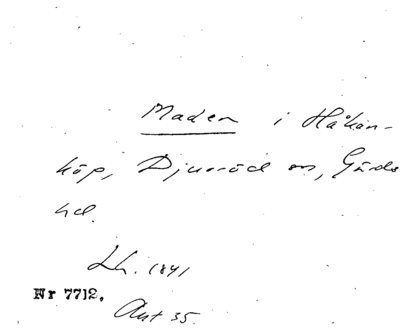 Maden i Håkan-
köp, Djuröd sn, Gärds
hd.
Lh. 1841
Nr 7712.
Akt 35.